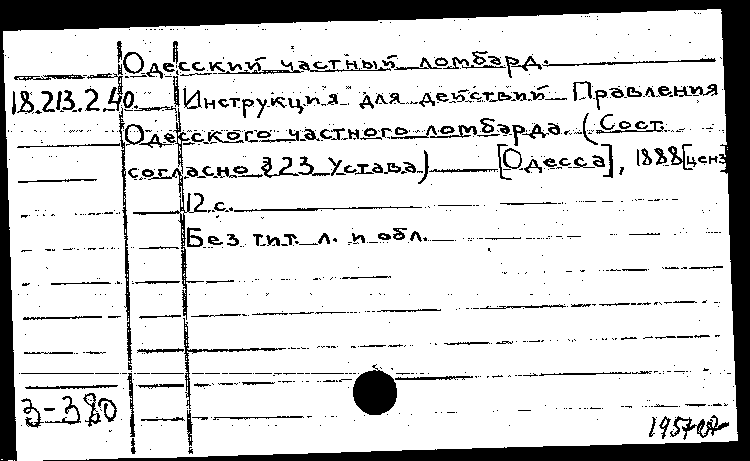 Одесский частный ломбард.
18.213.2.40. Инструкция для действий Правления
Одесского частного ломбарда. (Сост.
согласно § 23 Устава) [Одесса], 1888 [ценз
12 с.
Без тит. л. и обл.
З-380